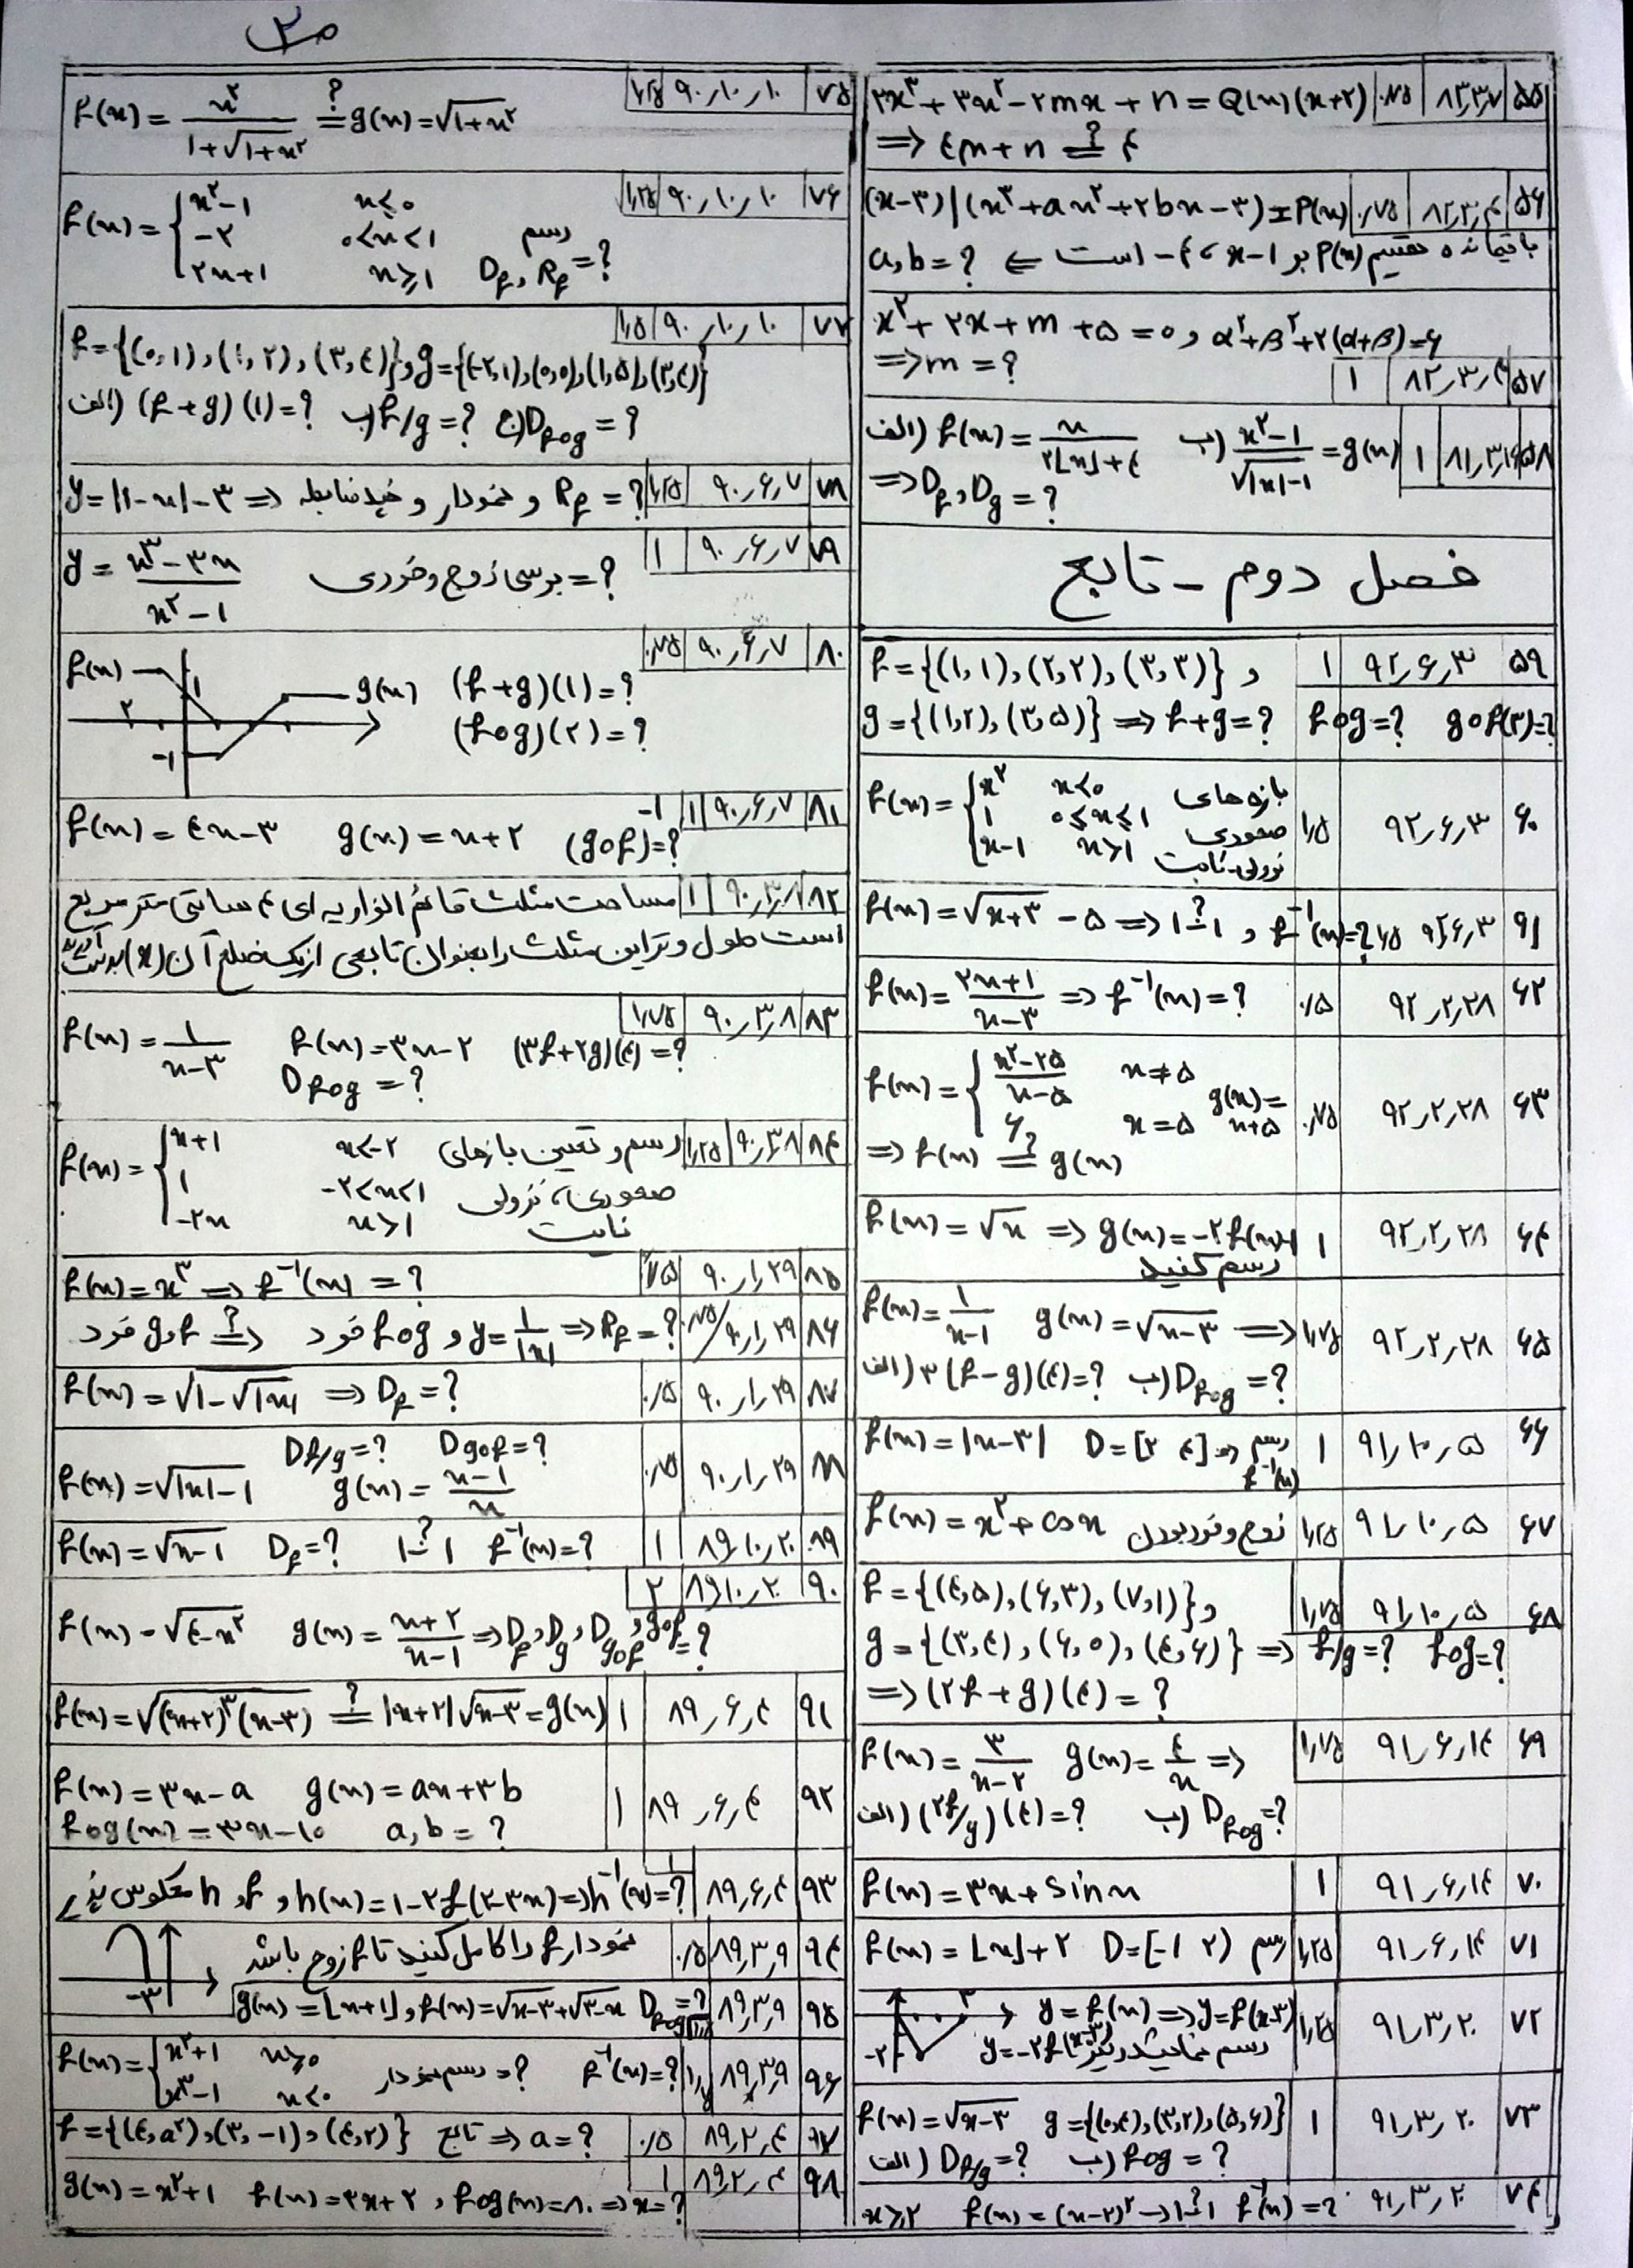 ص۲
۵۵ ۸۲,۳,۷ ۰,۷۵ ۳x³ + ۳x² − ۲mx + n = Q(x)(x+۲)
⇒ ۴m + n ≟ ۴
۵۶ ۸۲,۳,۴ ۰,۷۵ (x−۳) | (x³ + ax² + ۲bx − ۳) = P(x)
باقیمانده تقسیم P(x) بر x−۱ ، ۴− است ⇐ a, b = ?
x² + ۲x + m + ۵ = ۰ و α² + β² + ۲(α+β) = ۶
⇒ m = ?
۵۷ ۸۲,۳,۴ ۱
۵۸ ۱ الف) f(x) = x / (۲⌊x⌋ + ۴) ب) (x²−۱) / √(|x|−۱) = g(x)
⇒ D_f, D_g = ?
فصل دوم - تابع
۵۹ ۹۲,۶,۳ ۱ f = {(۱,۱), (۲,۲), (۳,۳)} و
g = {(۱,۲), (۳,۵)} ⇒ f+g = ? fog = ? gof(۳) = ?
۶۰ ۹۲,۶,۳ ۱,۵ f(x) = { x² x<۰ بازه های
۱ ۰≤x≤۱ صعودی
x−۱ x>۱ نزولی-ثابت
۶۱ ۹۲,۶,۳ f(x) = √(x+۳) − ۵ ⇒ ۱-۱ ? و f⁻¹(x) = ?
۶۲ ۹۲,۲,۲۸ ۰,۵ f(x) = (۲x+۱)/(x−۳) ⇒ f⁻¹(x) = ?
۶۳ ۹۲,۲,۲۸ ۰,۷۵ f(x) = { (x²−۲۵)/(x−۵) x≠۵
۶ x=۵ g(x) = x+۵
⇒ f(x) ≟ g(x)
۶۴ ۹۲,۲,۲۸ ۱ f(x) = √x ⇒ g(x) = −۲f(x)+۱
رسم کنید
۶۵ ۹۲,۲,۲۸ ۱,۷۵ f(x) = ۱/(x−۱) g(x) = √(x−۳) ⇒
الف) ۳(f−g)(۴) = ? ب) D_fog = ?
۶۶ ۹۱,۱۰,۵ ۱ f(x) = |x−۳| D = [۲ ۴] ⇒ رسم f⁻¹(x)
۶۷ ۹۱,۱۰,۵ ۱,۲۵ f(x) = x² + cosx زوج و فرد بودن
۶۸ ۹۱,۱۰,۵ ۱,۷۵ f = {(۴,۵), (۶,۳), (۷,۱)} و
g = {(۳,۴), (۶,۰), (۴,۶)} ⇒ f/g = ? fog = ?
⇒ (۲f+g)(۴) = ?
۶۹ ۹۱,۶,۱۴ ۱,۷۵ f(x) = ۳/(x−۲) g(x) = ۴/x ⇒
الف) (۲f/g)(۴) = ? ب) D_fog = ?
۷۰ ۹۱,۶,۱۴ ۱ f(x) = ۳x + sinx
۷۱ ۹۱,۶,۱۴ ۱,۲۵ f(x) = ⌊x⌋ + ۲ D = [−۱ ۲) رسم
۷۲ ۹۱,۳,۲۰ ۱,۲۵ ۳ −۲ y = f(x) ⇒ y = f(x−۳)
y = −۲f(x−۳) رسم نمائید
۷۳ ۹۱,۳,۲۰ ۱ f(x) = √(x−۳) g = {(۰,۴), (۳,۲), (۵,۶)}
الف) D_f/g = ? ب) fog = ?
۷۴ ۹۱,۳,۲۰ x≥۲ f(x) = (x−۲)² → ۱-۱ ? f⁻¹(x) = ?
۷۵ ۹۰,۱۰,۱۰ ۱,۲۵ f(x) = x² / (۱+√(۱+x²)) ≟ g(x) = √(۱+x²)
۷۶ ۹۰,۱۰,۱۰ ۱,۲۵ f(x) = { x²−۱ x≤۰
−۲ ۰<x<۱ رسم
۲x+۱ x≥۱ D_f, R_f = ?
۷۷ ۹۰,۱۰,۱۰ ۱,۵
f = {(۰,۱), (۱,۲), (۳,۴)} و g = {(−۲,۱), (۰,۰), (۱,۵), (۳,۴)}
الف) (f+g)(۱) = ? ب) f/g = ? ج) D_fog = ?
۷۸ ۹۰,۶,۷ ۱,۲۵ y = |۱−x| − ۳ ⇒ نمودار و چند ضابطه و R_f = ?
۷۹ ۹۰,۶,۷ ۱ y = (x³−۳x)/(x²−۱) بررسی زوج و فردی = ?
۸۰ ۹۰,۶,۷ ۰,۷۵
f(x) ۱ ۲ −۱ g(x) (f+g)(۱) = ?
(fog)(۲) = ?
۸۱ ۹۰,۶,۷ ۱ f(x) = ۴x−۳ g(x) = x+۲ (gof)⁻¹ = ?
۸۲ ۹۰,۳,۸ ۱ مساحت مثلث قائم الزاویه ای ۴ سانتی متر مربع
است طول وتر این مثلث را بعنوان تابعی از یک ضلع آن (x) بدست آورید
۸۳ ۹۰,۳,۸ ۱,۷۵ f(x) = ۱/(x−۳) f(x) = ۳x−۲ (۳f+۲g)(۴) = ?
D_fog = ?
۸۴ ۹۰,۳,۸ ۱,۲۵ f(x) = { x+۱ x<−۲ رسم و تعیین بازهای
۱ −۲<x<۱ صعودی، نزولی
−۲x x>۱ ثابت
۸۵ ۹۰,۱,۲۹ f(x) = x³ ⇒ f⁻¹(x) = ?
۸۶ ۹۰,۱,۲۹ ۰,۷۵ f و g فرد ≟ fog فرد و y = ۱/|x| ⇒ R_f = ?
۸۷ ۹۰,۱,۲۹ ۰,۵ f(x) = √(۱−√|x|) ⇒ D_f = ?
۸۸ ۹۰,۱,۲۹ ۰,۷۵ D_f/g = ? D_gof = ?
f(x) = √(|x|−۱) g(x) = (x−۱)/x
۸۹ ۸۹,۱۰,۲۰ ۱ f(x) = √(x−۱) D_f = ? ۱-۱ ? f⁻¹(x) = ?
۹۰ ۸۹,۱۰,۲۰ ۲
f(x) = √(۴−x²) g(x) = (x+۲)/(x−۱) ⇒ D_f, D_g, D_gof, gof = ?
۹۱ ۸۹,۶,۴ ۱ f(x) = √((x+۲)³(x−۳)) ≟ |x+۲|√(x−۳) = g(x)
۹۲ ۸۹,۶,۴ ۱ f(x) = ۳x−a g(x) = ax+۳b
fog(x) = ۳x−۱۰ a, b = ?
۹۳ ۸۹,۶,۴ ۱ f و h معکوس پذیر و h(x) = ۱−۲f(۲−۳x) ⇒ h⁻¹(x) = ?
۹۴ ۸۹,۳,۹ ۰,۵ نمودار f را کامل کنید تا f زوج باشد
−۳
۹۵ ۸۹,۳,۹ g(x) = ⌊x+۱⌋ و f(x) = √(x−۳)+√(۳−x) D_fog = ?
۹۶ ۸۹,۳,۹ f(x) = { x²+۱ x≥۰
x³−۱ x<۰ رسم نمودار = ? f⁻¹(x) = ?
۹۷ ۸۹,۲,۴ ۰,۵ f = {(۴,a²), (۳,−۱), (۴,۲)} تابع ⇒ a = ?
۹۸ ۸۹,۲,۴ ۱ g(x) = x²+۱ f(x) = ۳x+۲ , fog(x) = ۸۰ ⇒ x = ?